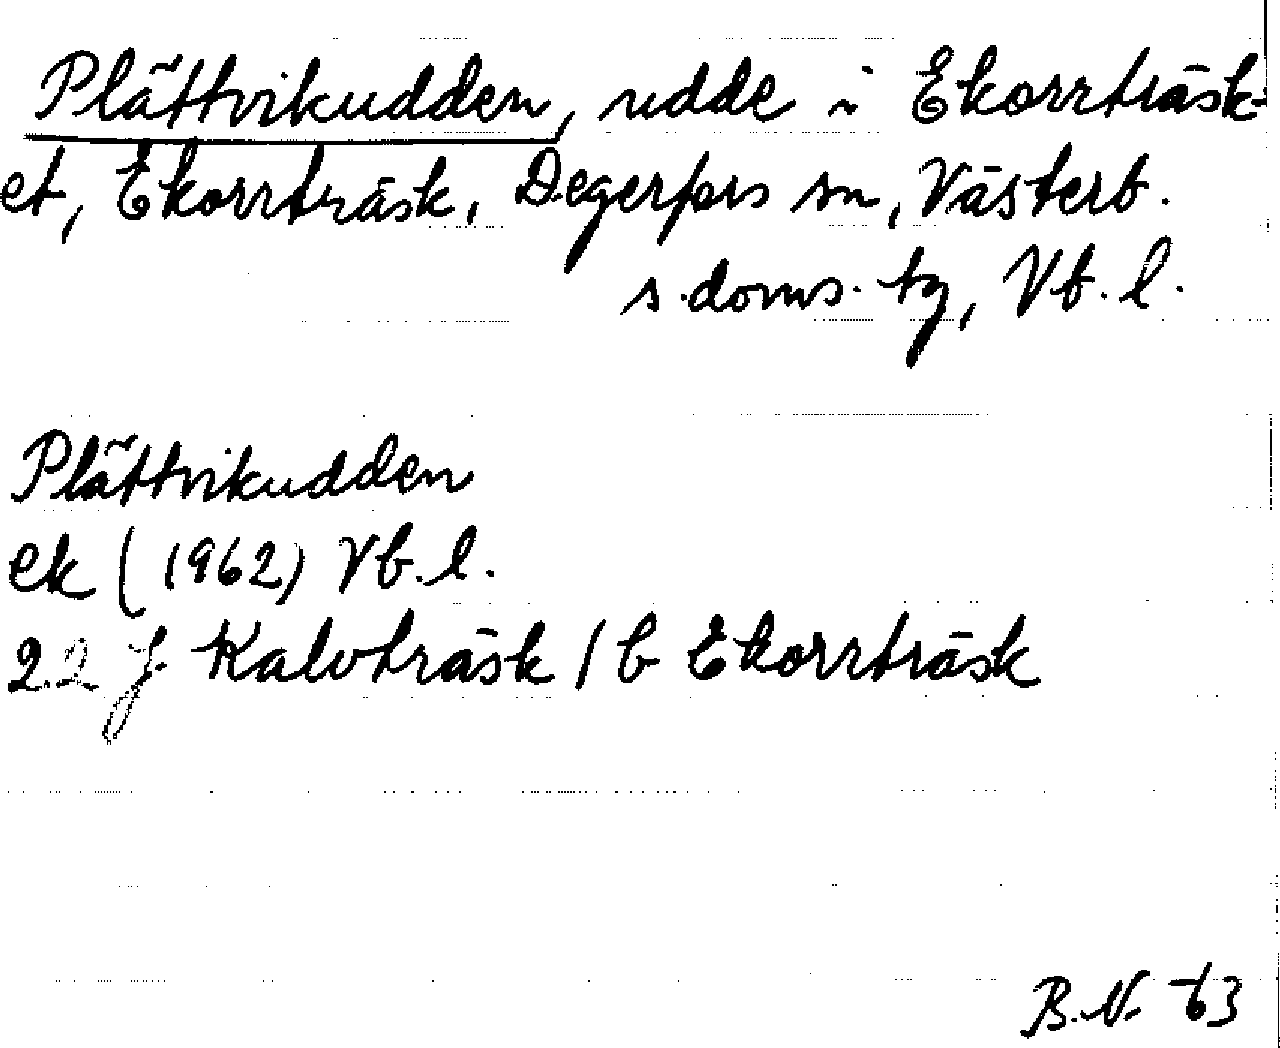 Plättvikudden, udde i Ekorrträsk-
et, Ekorrträsk, Degerfors sn, Västerb.
s. doms. tg, Vb. l.
Plättvikudden
ek (1962) Vb. l.
22 j Kalvträsk / b Ekorrträsk
B.N. 63